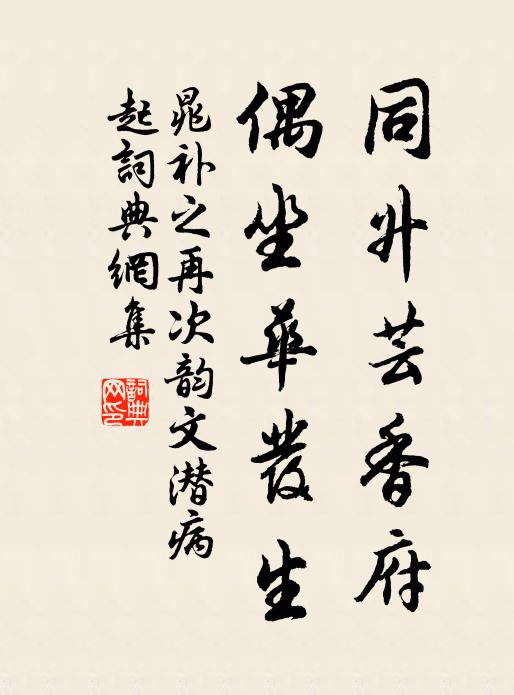 同升芸香府
偶坐華發生
晁补之再次韵文潜病
起詞典網集
詞典網印